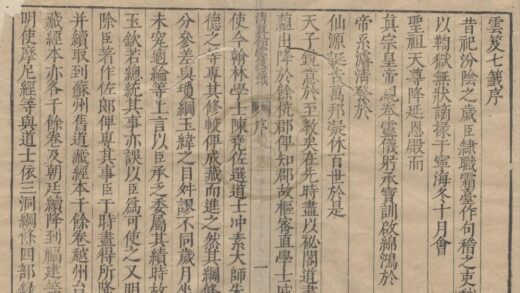 雲笈七籤序
昔祀汾陰之歲臣隸職霜臺作句稽之吏
以鞫獄無狀謫掾于寧海冬十月會
聖祖天尊降延恩殿而
真宗皇帝親奉靈儀躬承寶訓啟綿鴻於
帝系濬清發於
仙源誕告萬邦凝休百世於是
天子銳意於至教矣在先時盡以祕閣道書
蘊出降於餘杭郡俾知郡故樞密直學士戚
序 一
使今翰林學士陳堯佐選道士冲素大師朱
德之等專其修較俾成藏而進之然其綱條
分參差與瓊綱玉緯之目舛謬不同歲月坐
未究適綸等上言以臣承乏委屬其績時故
玉欽若總統其事亦誤以臣為可使之又明
除臣著作佐郎俾專其事臣于時盡得所降
并續取到蘇州舊道藏經本千餘卷越州台
藏經本亦各千餘卷及朝廷續降到福建等
明使摩尼經等與道士依三洞綱條四部錄